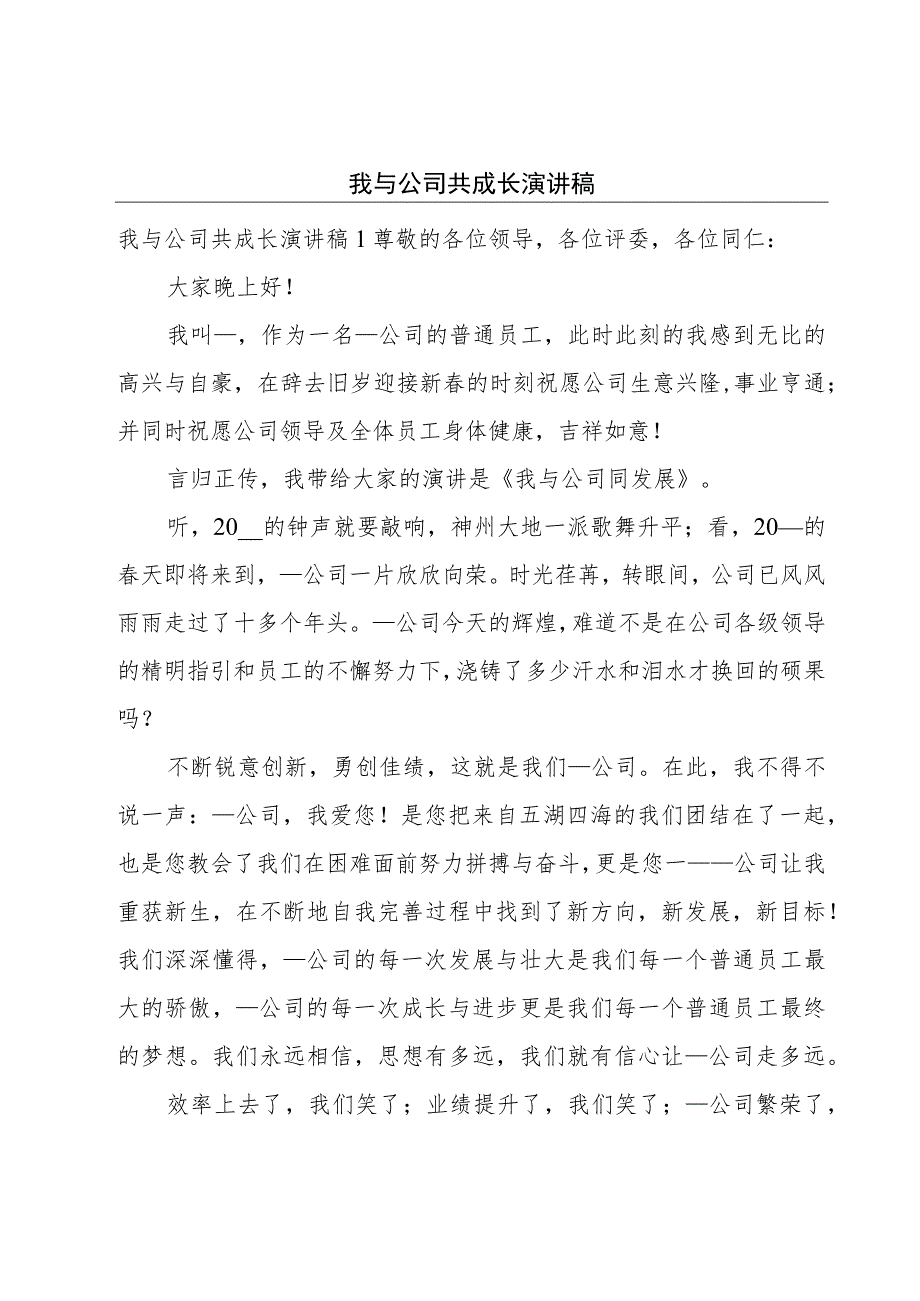 我与公司共成长演讲稿
我与公司共成长演讲稿1尊敬的各位领导，各位评委，各位同仁：
大家晚上好！
我叫—，作为一名—公司的普通员工，此时此刻的我感到无比的
高兴与自豪，在辞去旧岁迎接新春的时刻祝愿公司生意兴隆,事业亨通；
并同时祝愿公司领导及全体员工身体健康，吉祥如意！
言归正传，我带给大家的演讲是《我与公司同发展》。
听，20__的钟声就要敲响，神州大地一派歌舞升平；看，20—的
春天即将来到，—公司一片欣欣向荣。时光荏苒，转眼间，公司已风风
雨雨走过了十多个年头。—公司今天的辉煌,难道不是在公司各级领导
的精明指引和员工的不懈努力下,浇铸了多少汗水和泪水才换回的硕果
吗？
不断锐意创新，勇创佳绩，这就是我们—公司。在此，我不得不
说一声：—公司，我爱您！是您把来自五湖四海的我们团结在了一起，
也是您教会了我们在困难面前努力拼搏与奋斗,更是您一——公司让我
重获新生，在不断地自我完善过程中找到了新方向，新发展，新目标！
我们深深懂得，—公司的每一次发展与壮大是我们每一个普通员工最
大的骄傲，—公司的每一次成长与进步更是我们每一个普通员工最终
的梦想。我们永远相信，思想有多远，我们就有信心让—公司走多远。
效率上去了，我们笑了；业绩提升了，我们笑了；—公司繁荣了，